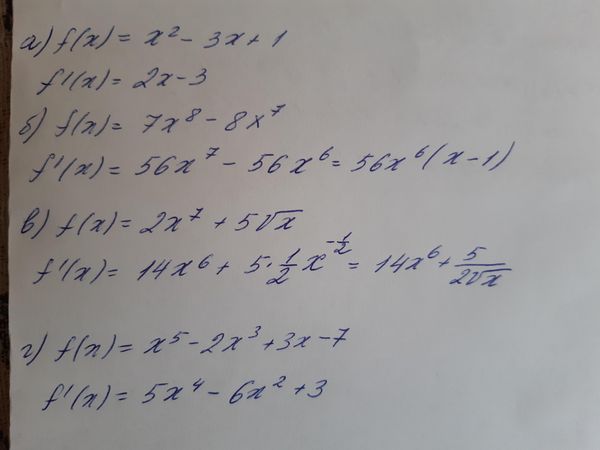 а) f(x) = x² - 3x + 1
f'(x) = 2x - 3
б) f(x) = 7x⁸ - 8x⁷
f'(x) = 56x⁷ - 56x⁶ = 56x⁶(x - 1)
в) f(x) = 2x⁷ + 5√x
f'(x) = 14x⁶ + 5·1/2 x^(-1/2) = 14x⁶ + 5/(2√x)
г) f(x) = x⁵ - 2x³ + 3x - 7
f'(x) = 5x⁴ - 6x² + 3